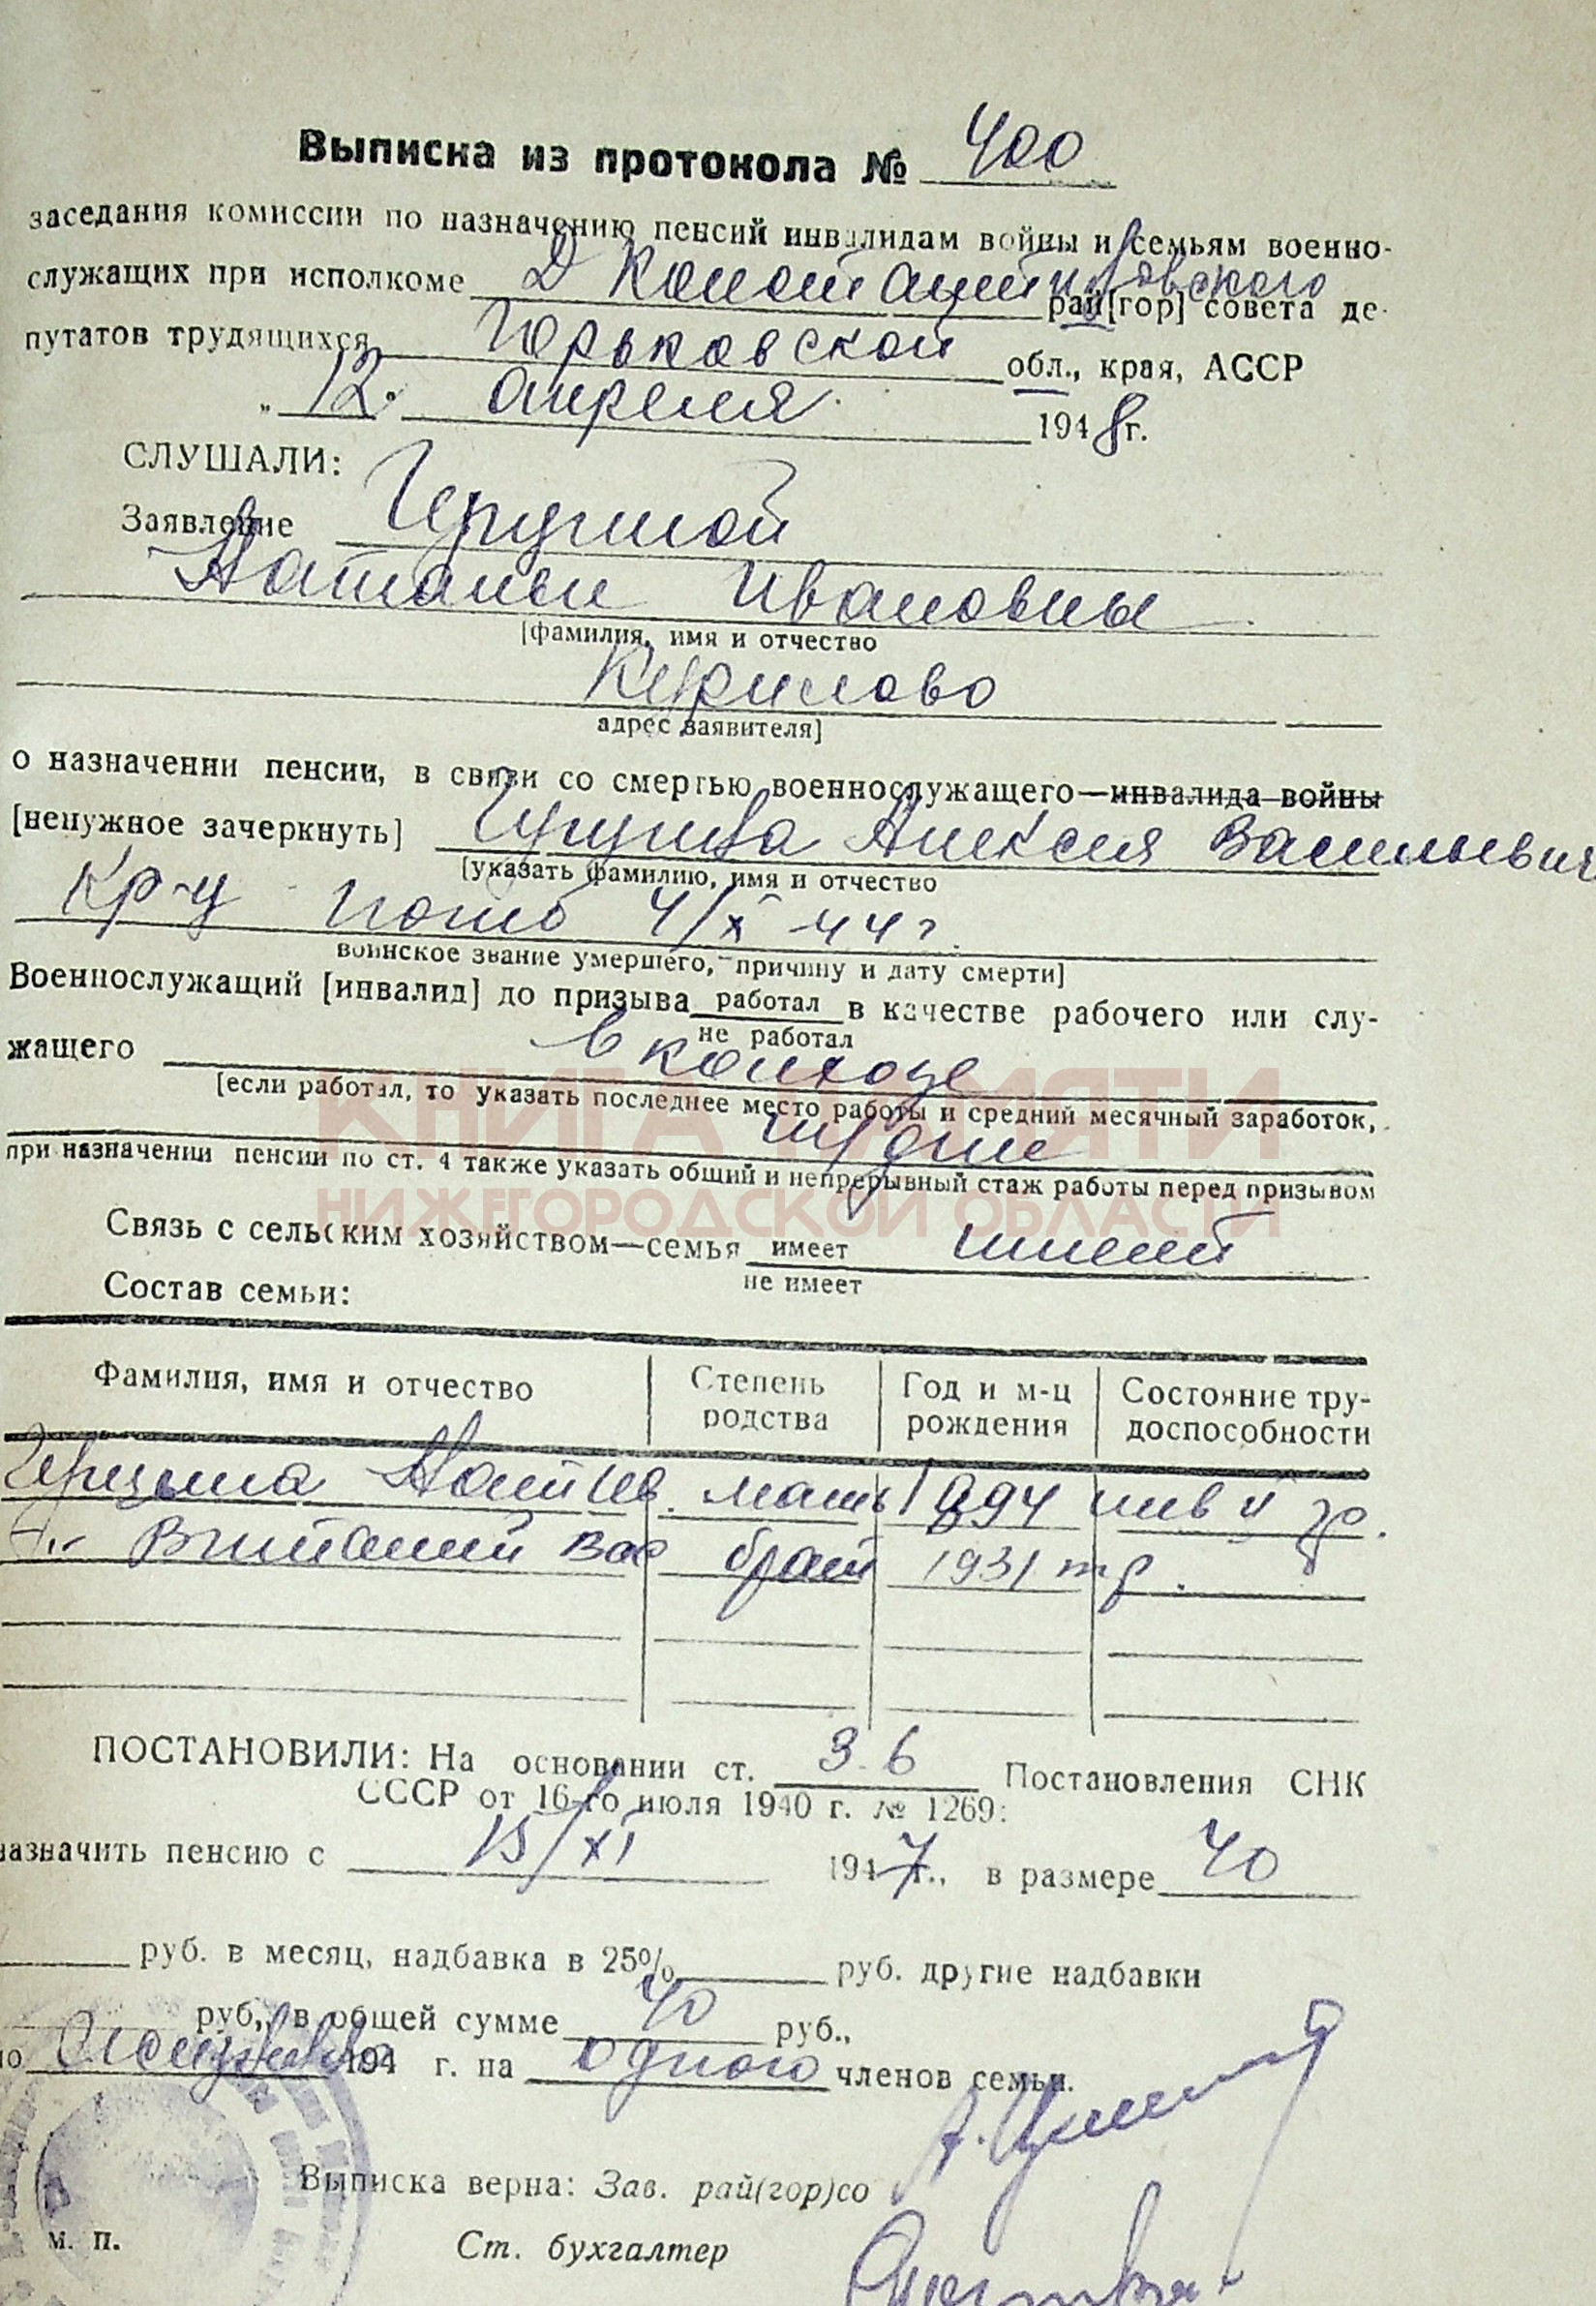 Выписка из протокола № 400
заседания комиссии по назначению пенсий инвалидам войны и семьям военно-
служащих при исполкоме Д Константиновского рай[гор] совета де-
путатов трудящихся Горьковской обл., края, АССР
„ 12. апреля 1948 г.
СЛУШАЛИ:
Заявление
Ивановны
[фамилия, имя и отчество
адрес заявителя]
о назначении пенсии, в связи со смертью военнослужащего—инвалида войны
[ненужное зачеркнуть] Алексея Васильевич
[указать фамилию, имя и отчество
Кр-ц погиб 4/X-44 г.
воинское звание умершего, причину и дату смерти]
Военнослужащий [инвалид] до призыва работал в качестве рабочего или слу-
не работал
жащего в колхозе
[если работал, то указать последнее место работы и средний месячный заработок,
при назначении пенсии по ст. 4 также указать общий и непрерывный стаж работы перед призывом
КНИГА ПАМЯТИ
НИЖЕГОРОДСКОЙ ОБЛАСТИ
Связь с сельским хозяйством—семья имеет имеет
не имеет
Состав семьи:
Фамилия, имя и отчество Степень родства Год и м-ц рождения Состояние тру-доспособности
мать 1894 инв II гр.
-"- Виталий Вас брат 1931 тр.
ПОСТАНОВИЛИ: На основании ст. 3.6 Постановления СНК
СССР от 16-го июля 1940 г. № 1269:
назначить пенсию с 15/XI 1947 г., в размере 40
руб. в месяц, надбавка в 25% руб. другие надбавки
руб., в общей сумме 40 руб.,
по 194 г. на одного членов семьи.
Выписка верна: Зав. рай(гор)со
м. п.
Ст. бухгалтер